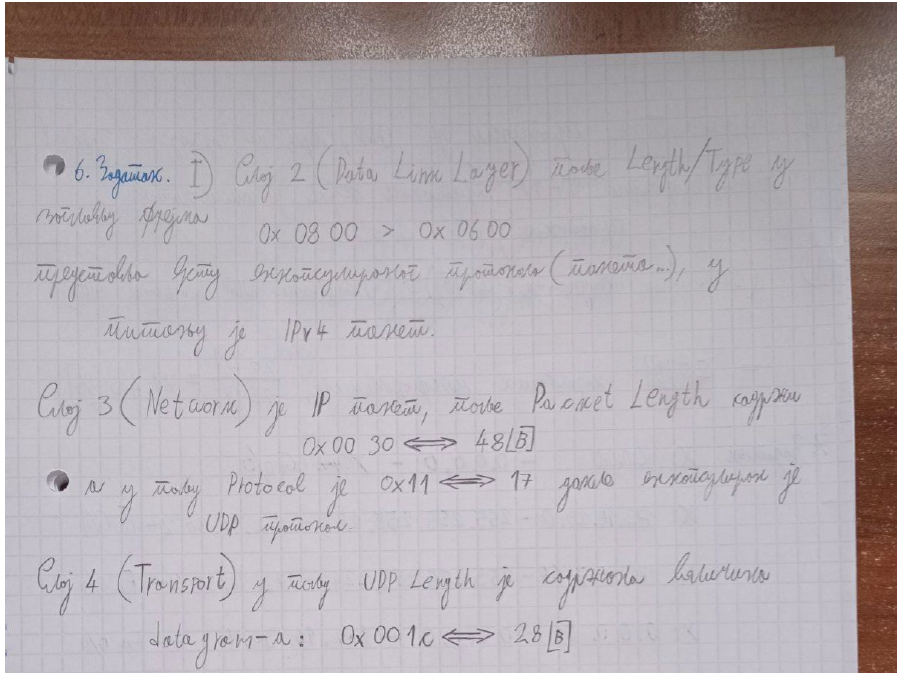 6. Задатак. I) Слој 2 (Data Link Layer) поље Length/Type у
заглављу фрејма
0x 08 00 > 0x 06 00
представља врсту енкапсулираног протокола (пакета...), у
питању је IPv4 пакет.
Слој 3 (Network) је IP пакет, поље Packet Length садржи
0x00 30 ⟺ 48[B]
а у пољу Protocol је 0x11 ⟺ 17 дакле енкапсулиран је
UDP протокол.
Слој 4 (Transport) у пољу UDP Length је садржана величина
datagram-а: 0x 001c ⟺ 28[B]